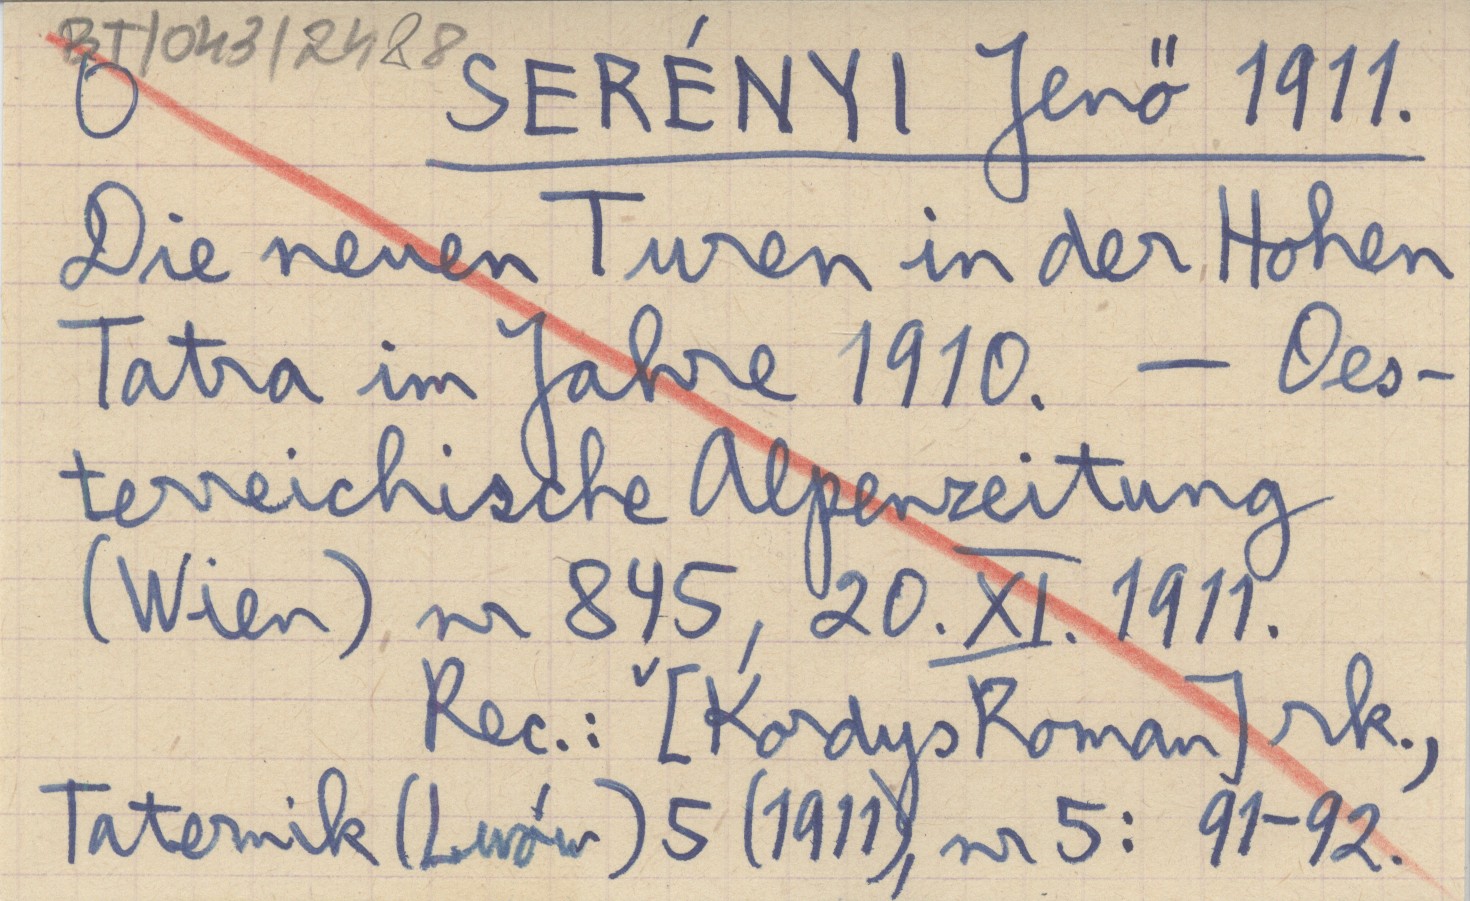 BT/043/2488
O SERÉNYI Jenő 1911.
Die neuen Turen in der Hohen
Tatra im Jahre 1910. — Oes-
terreichische Alpenzeitung
(Wien) nr 845, 20. XI. 1911.
Rec.: [Kordys Roman] rk.,
Taternik (Lwów) 5 (1911), nr 5: 91-92.